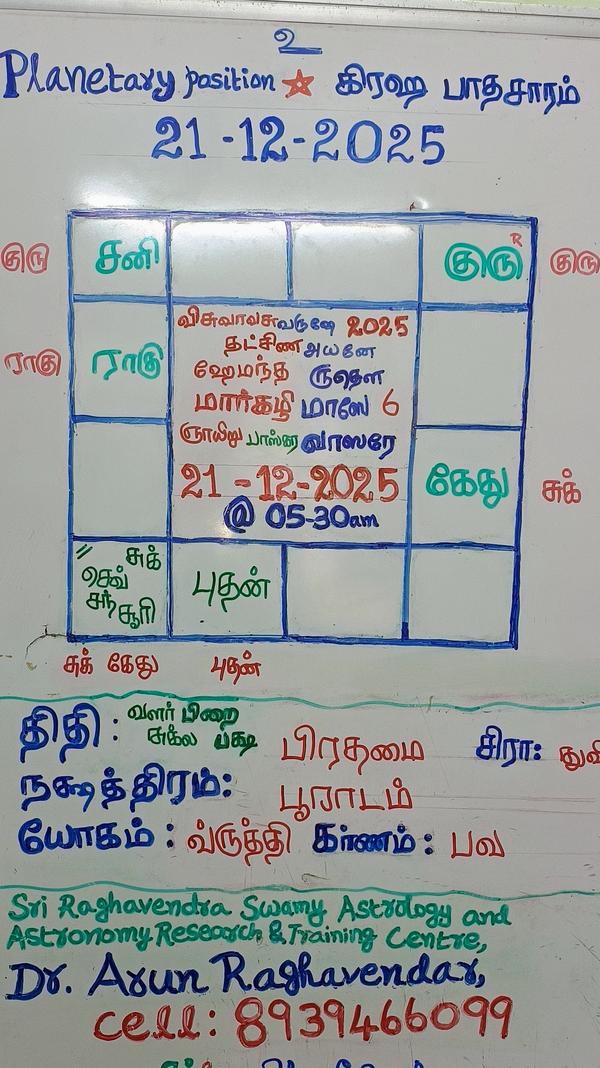 உ
Planetary position கிரஹ பாதசாரம்
21-12-2025
குரு சனி குரு R குரு
விசுவாவசு வருஷே 2025
தட்சிண அயனே
ராகு ராகு ஹேமந்த ருதௌ
மார்கழி மாஸே 6
ஞாயிறு பாஸ்கர வாஸரே
21-12-2025 கேது சுக்
@ 05-30am
// சுக்
செவ் புதன்
சந் சூரி
சுக் கேது புதன்
திதி : வளர் பிறை
சுக்ல பக்ஷ பிரதமை சிரா:
நக்ஷத்திரம்: பூராடம்
யோகம் : வ்ருத்தி கர்ணம் : பவ
Sri Raghavendra Swamy Astrology and
Astronomy Research & Training Centre,
Dr. Arun Raghavendar,
cell: 8939466099